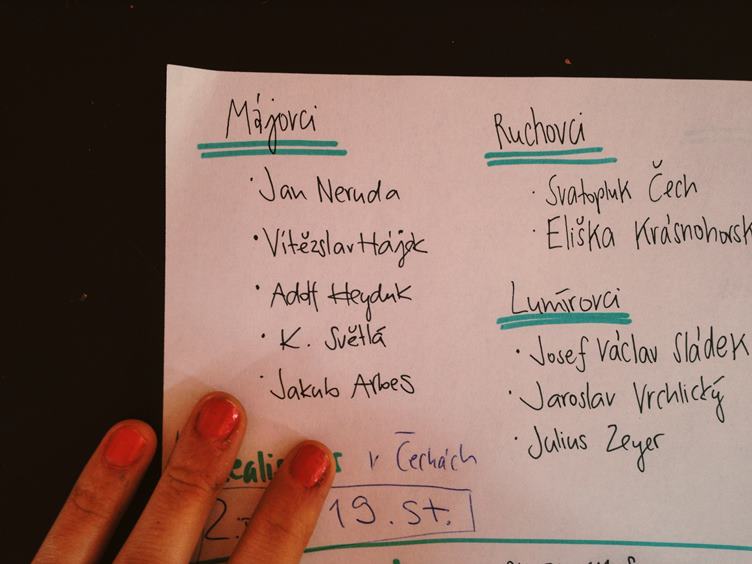 Májovci
Jan Neruda
Vítězslav Hájek
Adolf Heyduk
K. Světlá
Jakub Arbes
Ruchovci
Svatopluk Čech
Eliška Krásnohorsk
Lumírovci
Josef Václav Sládek
Jaroslav Vrchlický
Julius Zeyer
v Čechách
19. st.